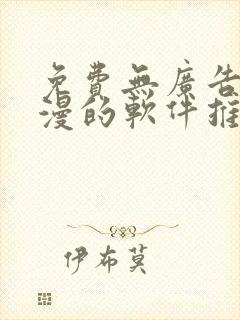 免費無廣告
漫的軟件推
伊布莫